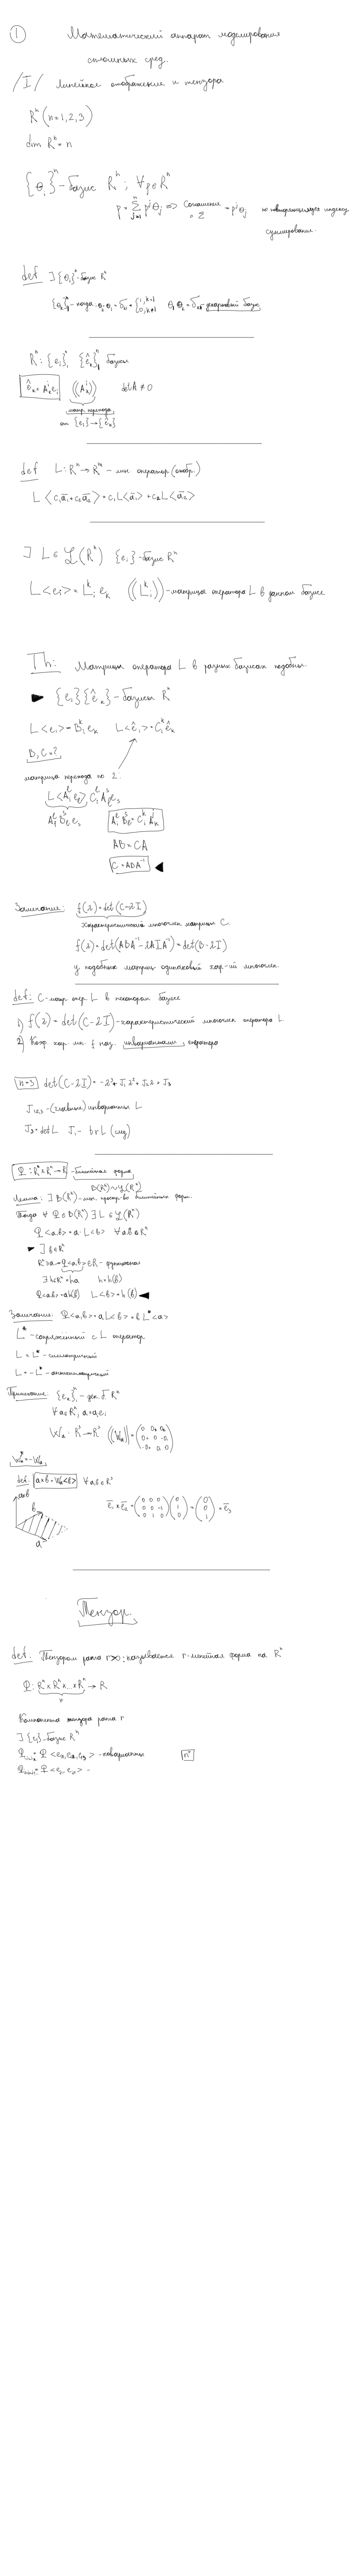 ① Математический аппарат моделирования
сплошных сред.
/I/ Линейное отображение и тензора
Rⁿ (n=1,2,3)
dim Rⁿ = n
{e_i}ⁿ - базис Rⁿ; ∀p∈Rⁿ
p = Σ_{j=1}^n p^j e_j => Соглашение о Σ = p^j e_j по повторяющемуся индексу
суммирование.
def ∃{e_i}ⁿ - базис Rⁿ
Rⁿ: {e_i}ⁿ_1 {ê_k}ⁿ_1 базисы
ê_k = A^i_k e_i ((A^i_k)) det A ≠ 0
матр. перехода
от {e_i} → {ê_k}
def L: Rⁿ → Rⁿ - лин. оператор (отобр.)
L<c₁a̅₁ + c₂a̅₂> = c₁L<a̅₁> + c₂L<a̅₂>
∃ L ∈ ℒ(Rⁿ) {e_i} - базис Rⁿ
L<e_i> = L^k_i e_k ((L^k_i)) - матрица оператора L в данном базисе
Th: Матрицы оператора L в разных базисах подобны
► {e_i}{ê_k} - базисы Rⁿ
L<e_i> = B^k_i e_k L<ê_i> = C^k_i ê_k
B, C = ?
матрица перехода по 2:
AB = CA
C = ABA⁻¹ ◄
Замечание: f(λ) = det(C-λI)
Характеристический многочлен матрицы C.
f(λ) = det(ABA⁻¹ - λAIA⁻¹) = det(B-λI)
у подобных матриц одинаковый хар-ий многочлен.
def: C - матр. опер. L в некотором базисе
1) f(λ) = det(C-λI) - характеристический многочлен оператора L
2) Коэф. хар. мн. f наз. инвариантами оператора
n=3 det(C-λI) = -λ³ + J₁λ² + J₂λ + J₃
J₁,₂,₃ - (главные) инварианты L
J₃ = det L J₁ - tr L (след)
Φ: Rⁿ×Rⁿ → R - билинейная форма
B(Rⁿ) ~ ℒ(Rⁿ)
Лемма: ∃ B(Rⁿ) - лин. простр-во билинейных форм.
Тогда ∀ Φ ∈ B(Rⁿ) ∃ L ∈ ℒ(Rⁿ)
Φ<a,b> = a·L<b> ∀a,b ∈ Rⁿ
► ∃ b ∈ Rⁿ
∃ h∈Rⁿ = ha h = h(b)
Φ<a,b> = ah(b) L<b> = h(b) ◄
Замечание: Φ<a,b> = aL<b> = bL*<a>
L* - сопряженный с L оператор
L = L* - симметричный
L = -L* - антисимметричный
∀a∈R³, a = a_i e_i
W_a: R³ → R³
W_a* = -W_a
def: a×b = W_a<b> ∀a,b ∈ R³
a×b
b
a
e̅₁×e̅₂ = (0 0 0; 0 0 -1; 0 1 0)(0; 1; 0) = (0; 0; 1) = e̅₃
Тензор.
def. Тензором ранга r>0: называется r-линейная форма на Rⁿ
Φ: Rⁿ×Rⁿ×...×Rⁿ → R
Компонента тензора ранга r
∃ {e_i} - базис Rⁿ